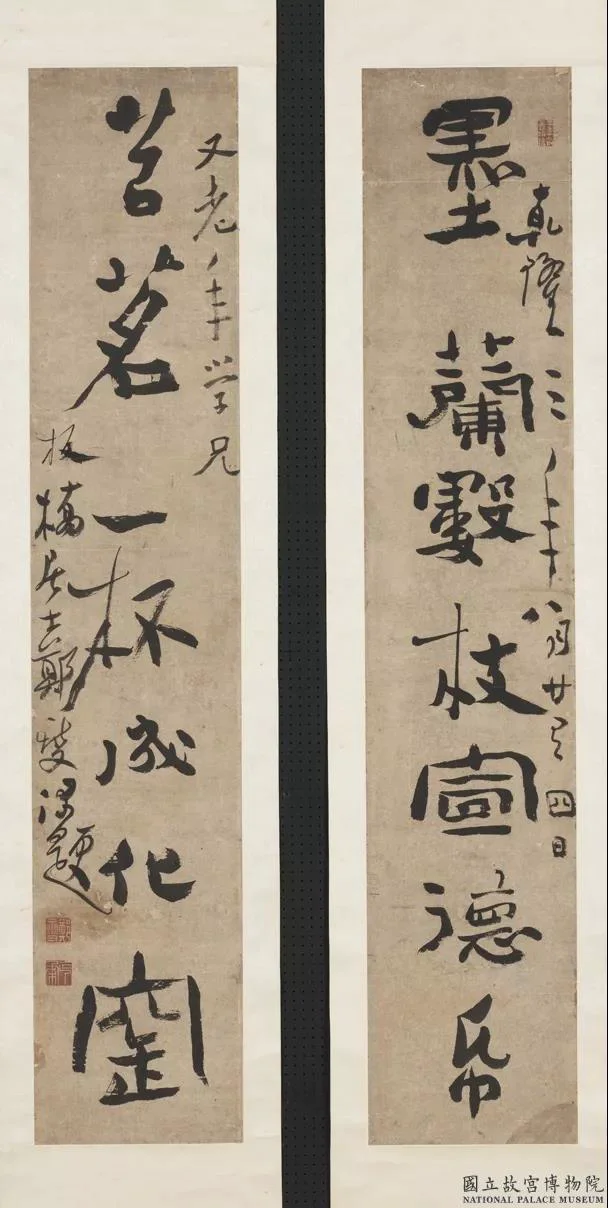 墨蘭數枝宣德帋
乾隆年八月廿四日
又老年学兄
苦茗一杯成化窑
板橋居士鄭燮漫題
國立故宮博物院
NATIONAL PALACE MUSEUM